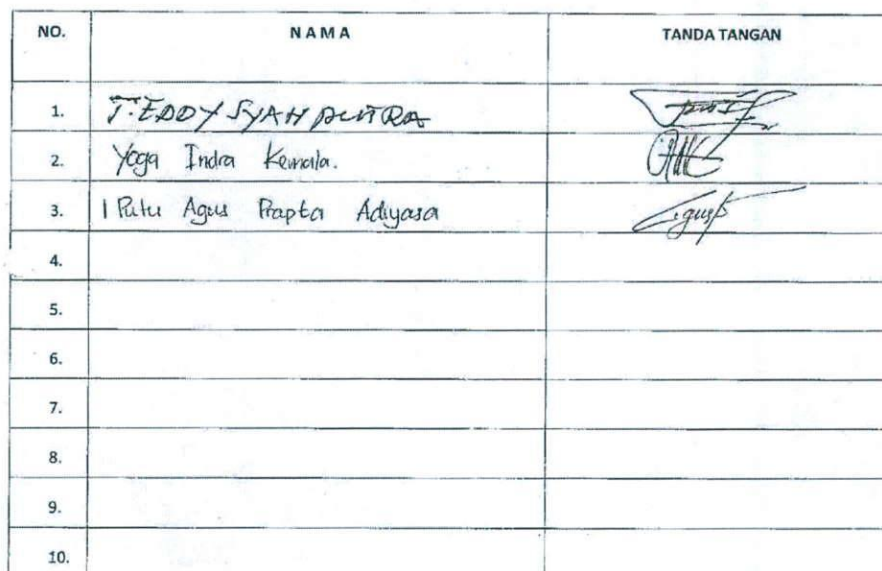 NO. NAMA TANDA TANGAN
1. T. EDDY SYAH PUTRA
2. Yoga Indra Kemala.
3. I Putu Agus Prapta Adiyasa
4.
5.
6.
7.
8.
9.
10.